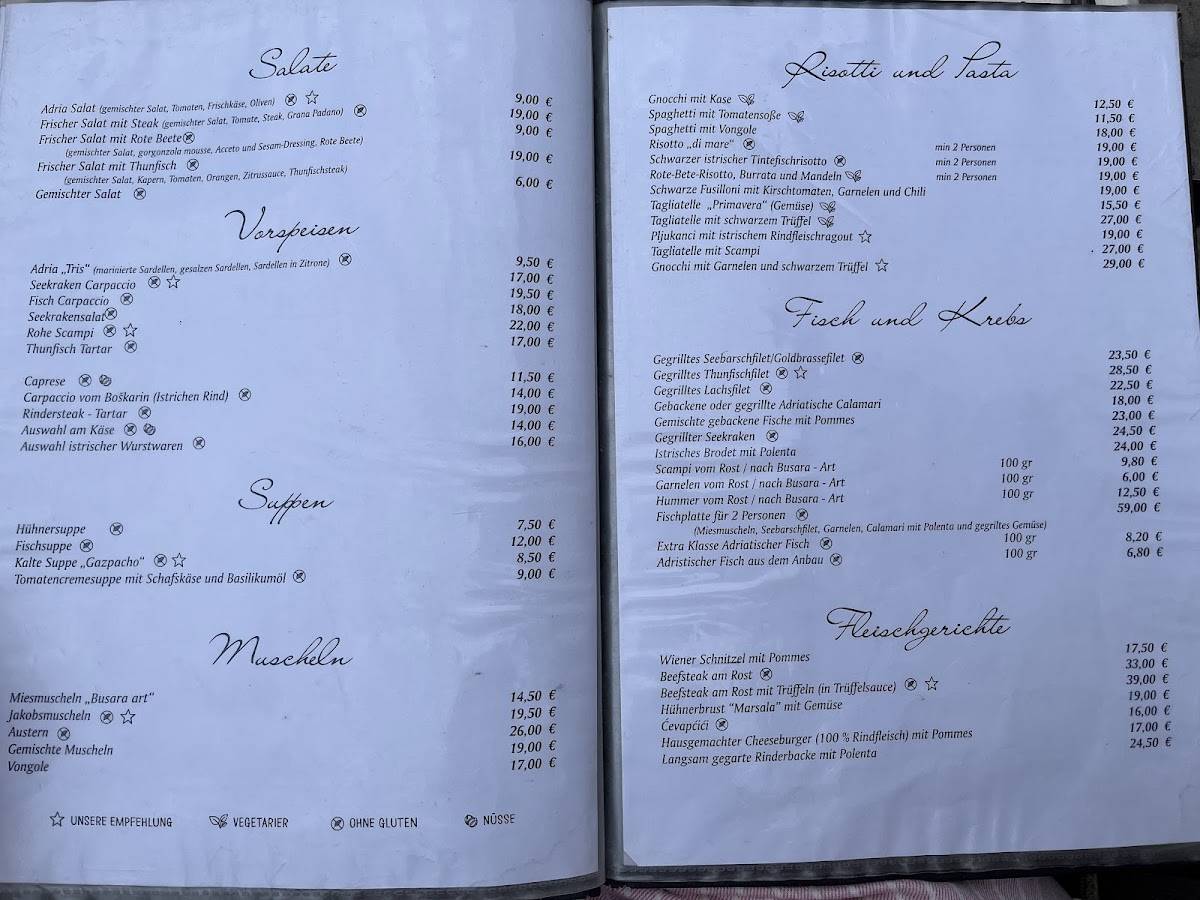 Salate
Adria Salat (gemischter Salat, Tomaten, Frischkäse, Oliven) 9,00 €
Frischer Salat mit Steak (gemischter Salat, Tomate, Steak, Grana Padano) 19,00 €
Frischer Salat mit Rote Beete 9,00 €
(gemischter Salat, gorgonzola mousse, Acceto und Sesam-Dressing, Rote Beete)
Frischer Salat mit Thunfisch 19,00 €
(gemischter Salat, Kapern, Tomaten, Orangen, Zitrussauce, Thunfischsteak)
Gemischter Salat 6,00 €
Vorspeisen
Adria „Tris“ (marinierte Sardellen, gesalzen Sardellen, Sardellen in Zitrone) 9,50 €
Seekraken Carpaccio 17,00 €
Fisch Carpaccio 19,50 €
Seekrakensalat 18,00 €
Rohe Scampi 22,00 €
Thunfisch Tartar 17,00 €
Caprese 11,50 €
Carpaccio vom Boškarin (Istrichen Rind) 14,00 €
Rindersteak - Tartar 19,00 €
Auswahl am Käse 14,00 €
Auswahl istrischer Wurstwaren 16,00 €
Suppen
Hühnersuppe 7,50 €
Fischsuppe 12,00 €
Kalte Suppe „Gazpacho“ 8,50 €
Tomatencremesuppe mit Schafskäse und Basilikumöl 9,00 €
Muscheln
Miesmuscheln „Busara art“ 14,50 €
Jakobsmuscheln 19,50 €
Austern 26,00 €
Gemischte Muscheln 19,00 €
Vongole 17,00 €
UNSERE EMPFEHLUNG VEGETARIER OHNE GLUTEN NÜSSE
Risotti und Pasta
Gnocchi mit Kase 12,50 €
Spaghetti mit Tomatensoße 11,50 €
Spaghetti mit Vongole 18,00 €
Risotto „di mare“ min 2 Personen 19,00 €
Schwarzer istrischer Tintefischrisotto min 2 Personen 19,00 €
Rote-Bete-Risotto, Burrata und Mandeln min 2 Personen 19,00 €
Schwarze Fusilloni mit Kirschtomaten, Garnelen und Chili 19,00 €
Tagliatelle „Primavera“ (Gemüse) 15,50 €
Tagliatelle mit schwarzem Trüffel 27,00 €
Pljukanci mit istrischem Rindfleischragout 19,00 €
Tagliatelle mit Scampi 27,00 €
Gnocchi mit Garnelen und schwarzem Trüffel 29,00 €
Fisch und Krebs
Gegrilltes Seebarschfilet/Goldbrassefilet 23,50 €
Gegrilltes Thunfischfilet 28,50 €
Gegrilltes Lachsfilet 22,50 €
Gebackene oder gegrillte Adriatische Calamari 18,00 €
Gemischte gebackene Fische mit Pommes 23,00 €
Gegrillter Seekraken 24,50 €
Istrisches Brodet mit Polenta 24,00 €
Scampi vom Rost / nach Busara - Art 100 gr 9,80 €
Garnelen vom Rost / nach Busara - Art 100 gr 6,00 €
Hummer vom Rost / nach Busara - Art 100 gr 12,50 €
Fischplatte für 2 Personen 59,00 €
(Miesmuscheln, Seebarschfilet, Garnelen, Calamari mit Polenta und gegriltes Gemüse)
Extra Klasse Adriatischer Fisch 100 gr 8,20 €
Adristischer Fisch aus dem Anbau 100 gr 6,80 €
Fleischgerichte
Wiener Schnitzel mit Pommes 17,50 €
Beefsteak am Rost 33,00 €
Beefsteak am Rost mit Trüffeln (in Trüffelsauce) 39,00 €
Hühnerbrust “Marsala” mit Gemüse 19,00 €
Ćevapćići 16,00 €
Hausgemachter Cheeseburger (100 % Rindfleisch) mit Pommes 17,00 €
Langsam gegarte Rinderbacke mit Polenta 24,50 €